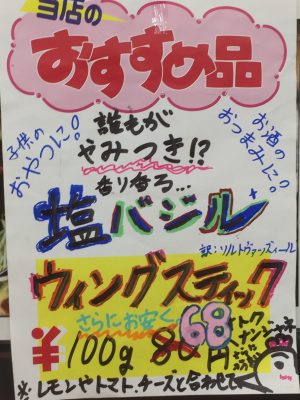 当店の
おすすめ品
誰もが
やみつき!?
香り香る…
子供の
おやつに。
お酒の
おつまみに!
塩バジル
訳:ソルトヴァーズィール
ウィングスティック
さらにお安く
¥100g 80 68円
トク
ナンジャネ
※レモンやトマト、チーズと合わせて